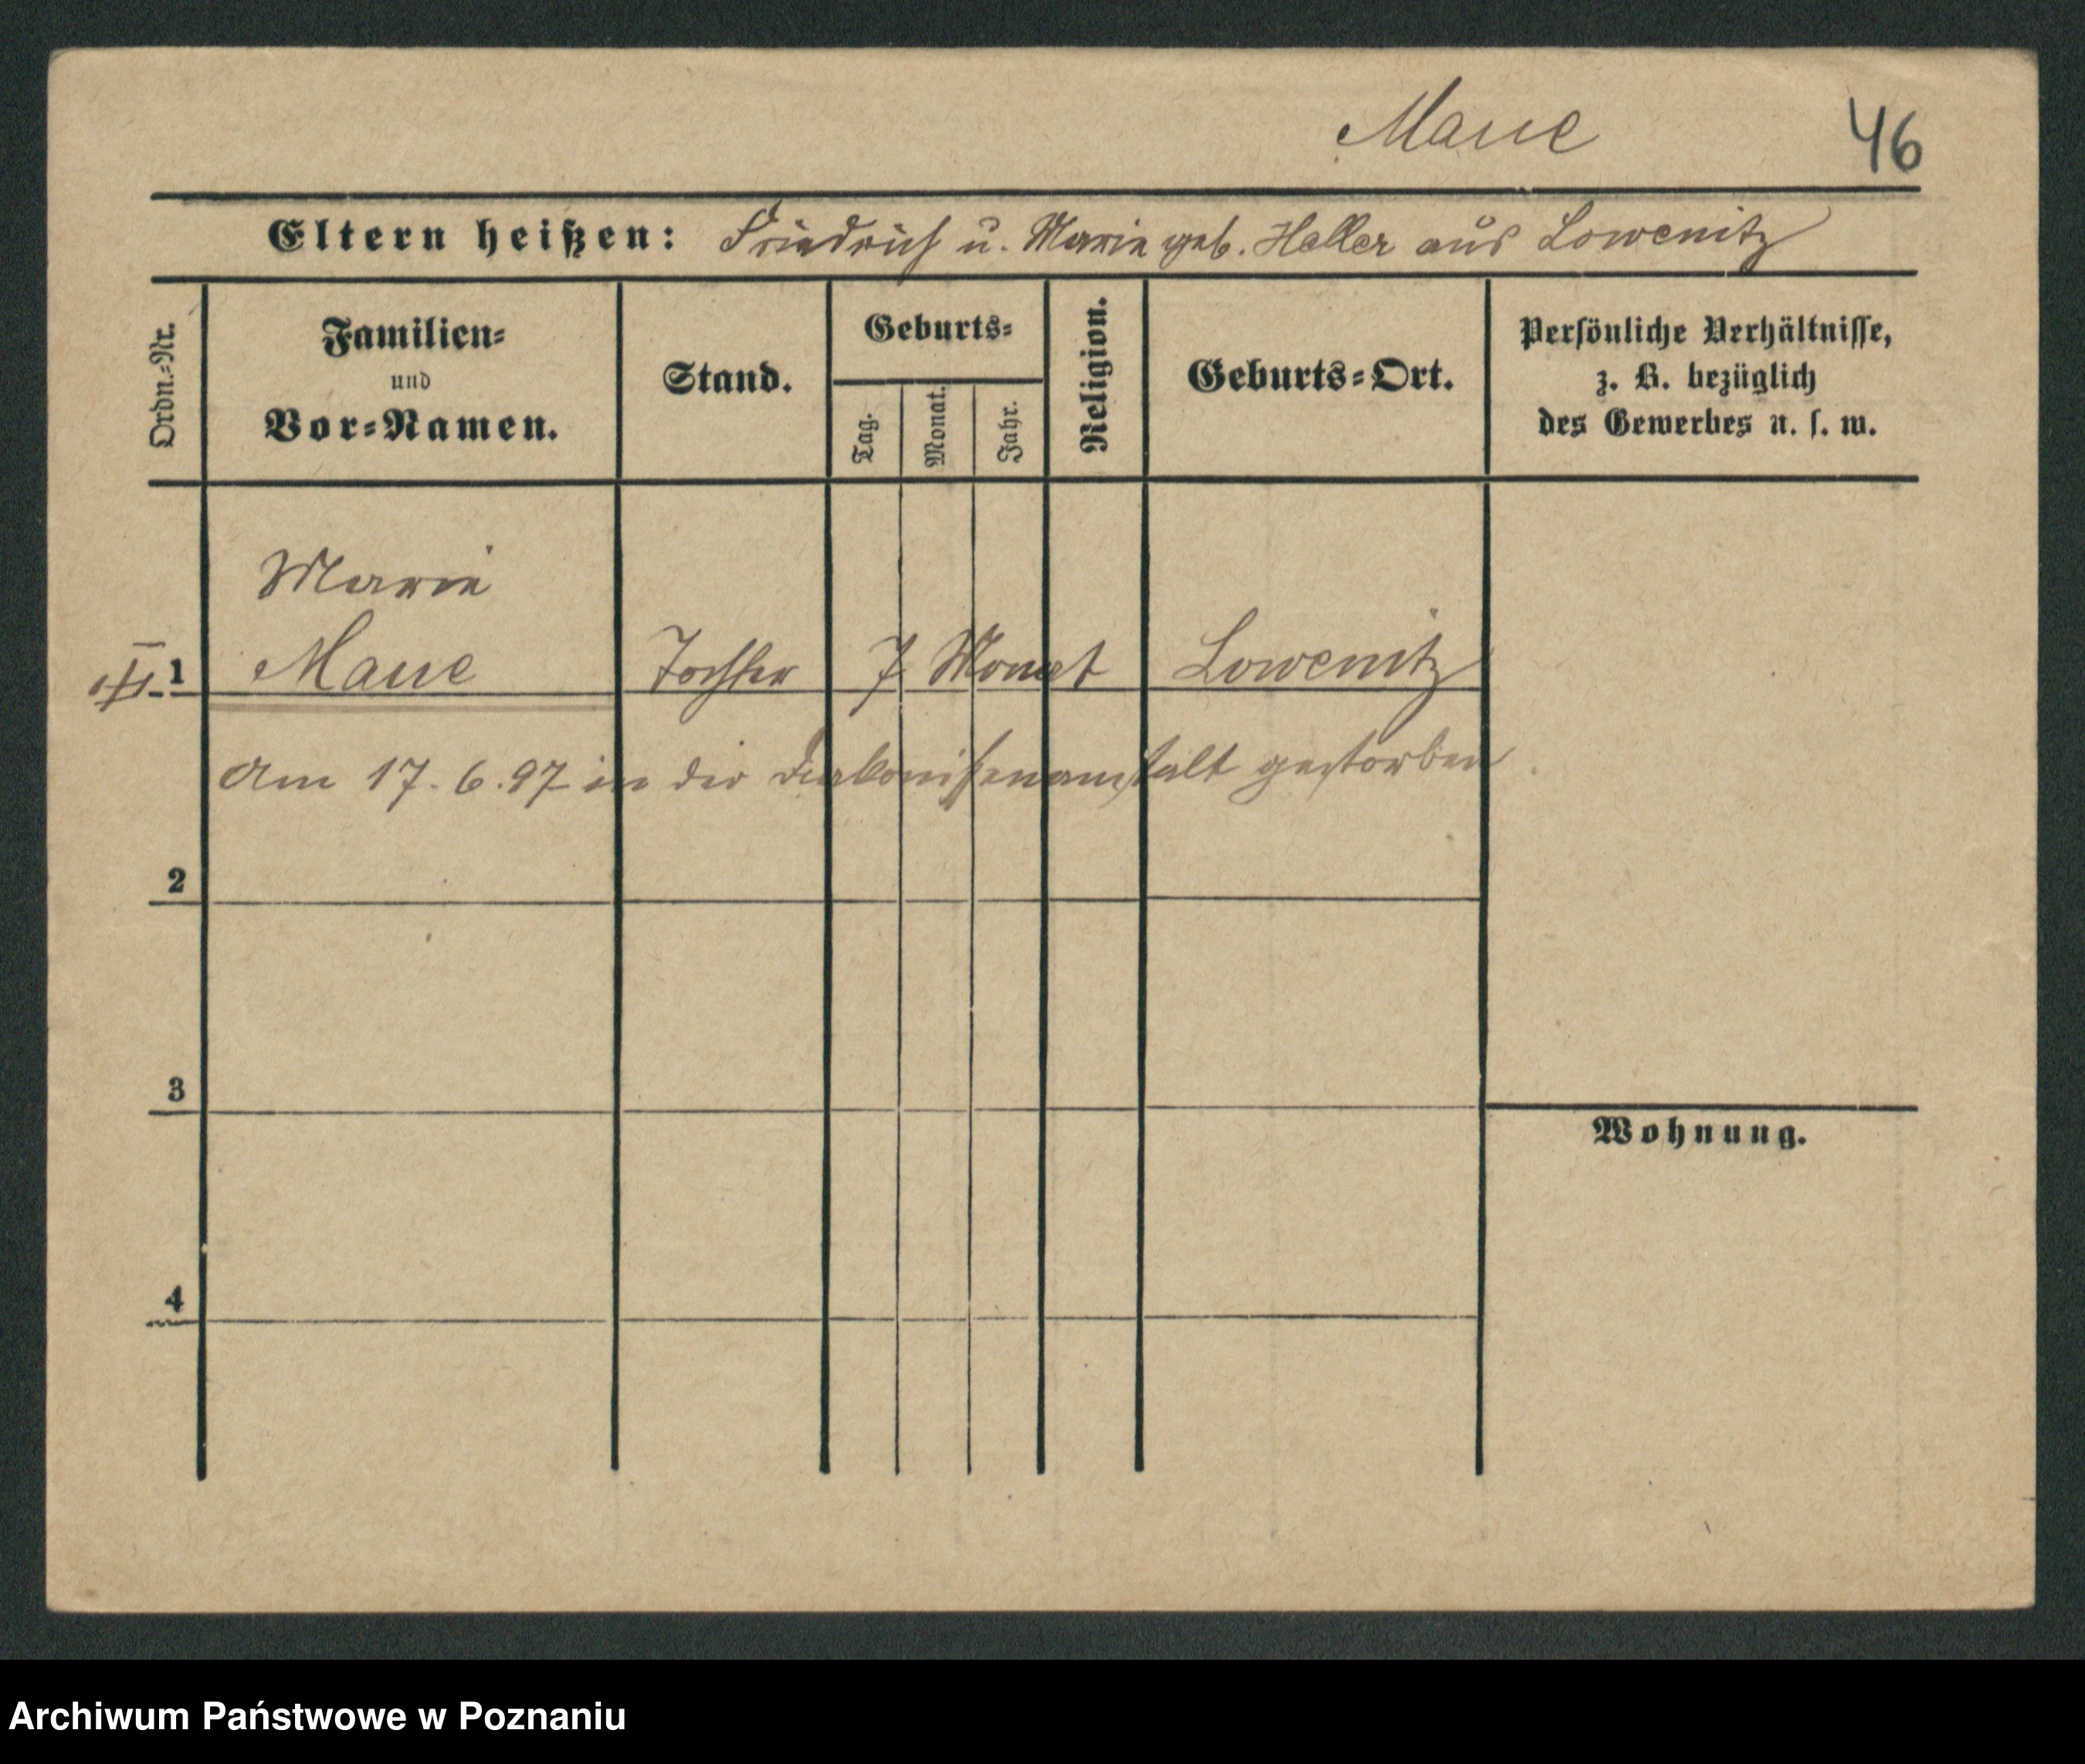 Maue 46
Eltern heißen: Friedrich u. Marie geb. Heller aus Lowenitz
Ordn.-Nr.
Familien-
und
Vor-Namen.
Stand.
Geburts-
Tag.
Monat.
Jahr.
Religion.
Geburts-Ort.
Persönliche Verhältnisse,
z. B. bezüglich
des Gewerbes u. s. w.
Marie
1 Maue Tochter 7 Monat Lowenitz
Am 17.6.97 in der Diakonissenanstalt gestorben
2
3
Wohnung.
4
Archiwum Państwowe w Poznaniu